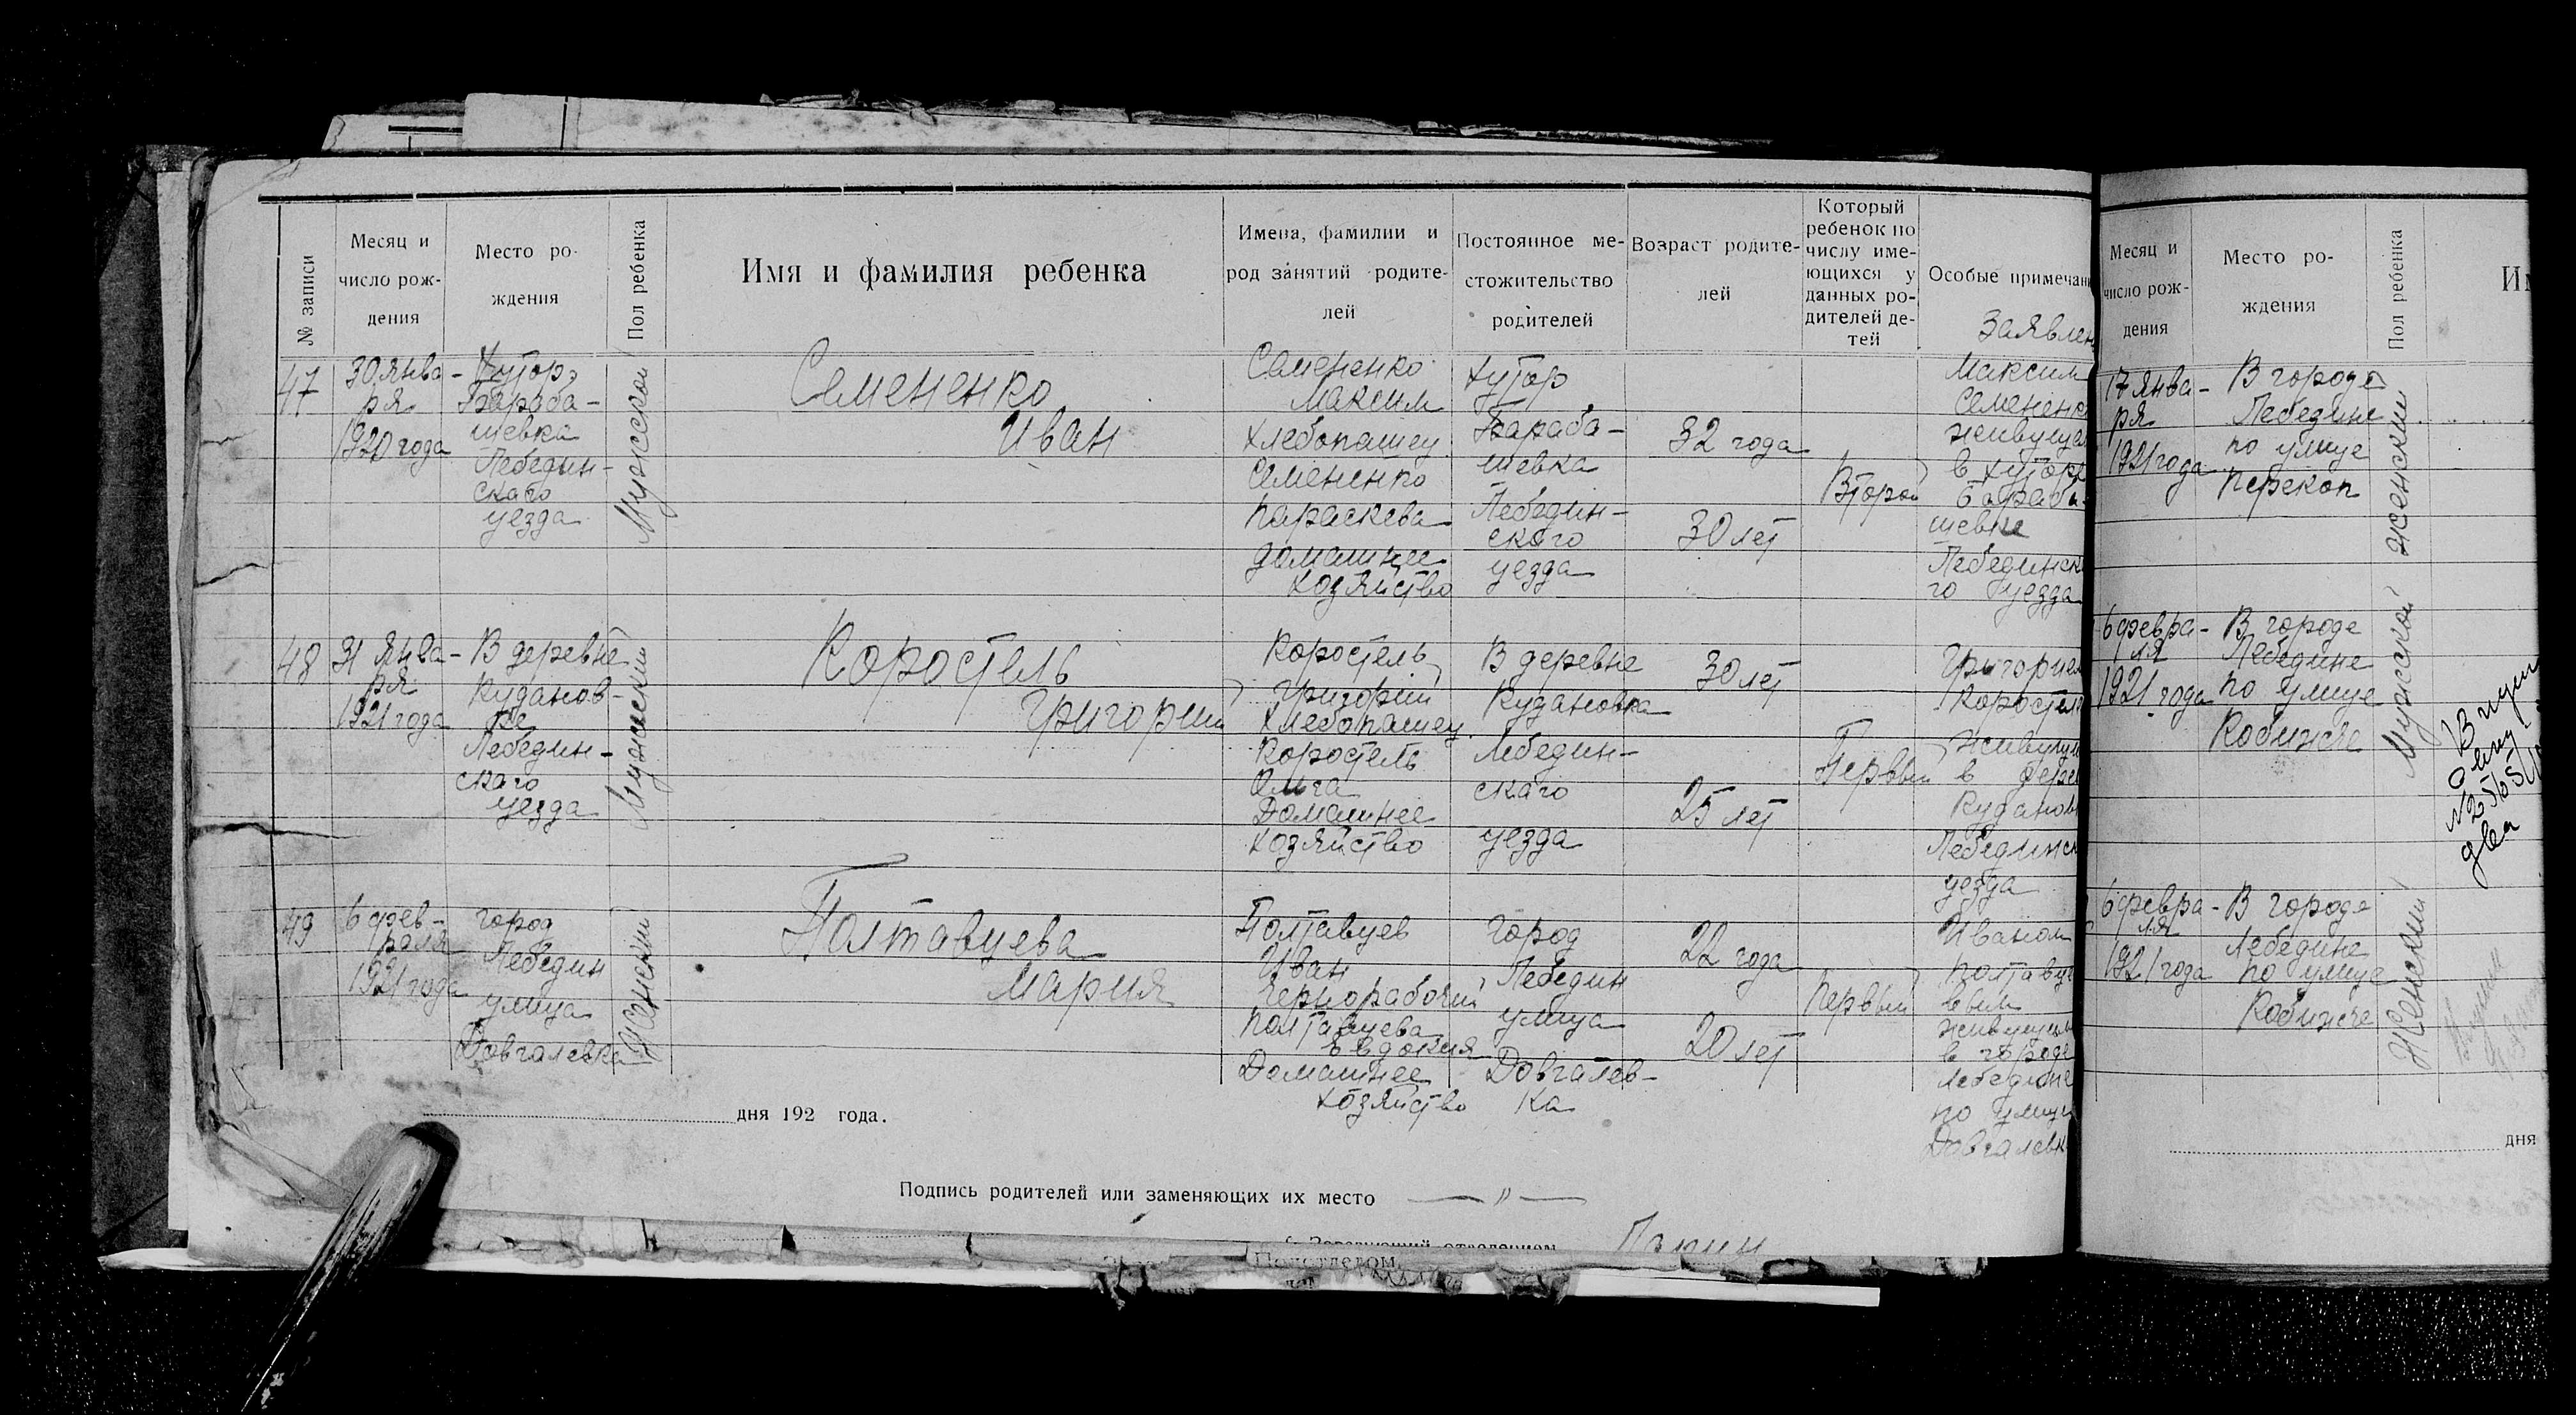 № записи
Месяц и
число рож-
дения
Место ро-
ждения
Пол ребенка
Имя и фамилия ребенка
Имена, фамилии и
род занятий родите-
лей
Постоянное ме-
стожительство
родителей
Возраст родите-
лей
Который
ребенок по
числу име-
ющихся у
данных ро-
дителей де-
тей
Особые примечан
Заявлен
47
30 янва-
ря
1920 года
Хутор
Бараба-
шевка
Лебедин-
скаго
уезда
Мужской
Семененко
Иван
Семененко
Максим
хлебопашец
Семененко
Параскева
домашнее
хозяйство
хутор
Бараба-
шевка
Лебедин-
скаго
уезда
32 года
30 лет
Второй
Максим
Семененк
живущ
в хуторе
Бараба-
шевке
Лебединск
го уезда
48
31 Янва-
ря
1921 года
В деревне
Куданов-
ке
Лебедин-
скаго
уезда
Мужский
Коростель
Григорий
Коростель
Григорий
Хлебопашец
Коростель
Ольга
Домашнее
хозяйство
В деревне
Кудановка
Лебедин-
скаго
уезда
30 лет
25 лет
Первый
Григорием
Коростел
живущи
в дерев
Куданов
Лебединск
уезда
49
6 фев-
раля
1921 года
город
Лебедин
улица
Довгалевка
Женский
Полтавцева
Мария
Полтавцев
Иван
Чернорабочий
Полтавцева
Евдокия
Домашнее
хозяйство
город
Лебедин
улица
Довгалев-
ка
22 года
20 лет
Первый
Иваном
Полтавце
вым
живущим
в городе
Лебедине
по улице
Довгалевк
дня 192 года.
Подпись родителей или заменяющих их место — " —
Заведующий отделением
Подотделом
Месяц и
число рож-
дения
Место ро-
ждения
Пол ребенка
Им
17 янва-
ря
1921 года
В городе
Лебедине
по улице
Перекоп
Женский
6 февра-
ля
1921 года
В городе
Лебедине
по улице
Кобижче
Мужской
6 февра-
ля
1921 года
В городе
Лебедине
по улице
Кобижче
Женский
дня